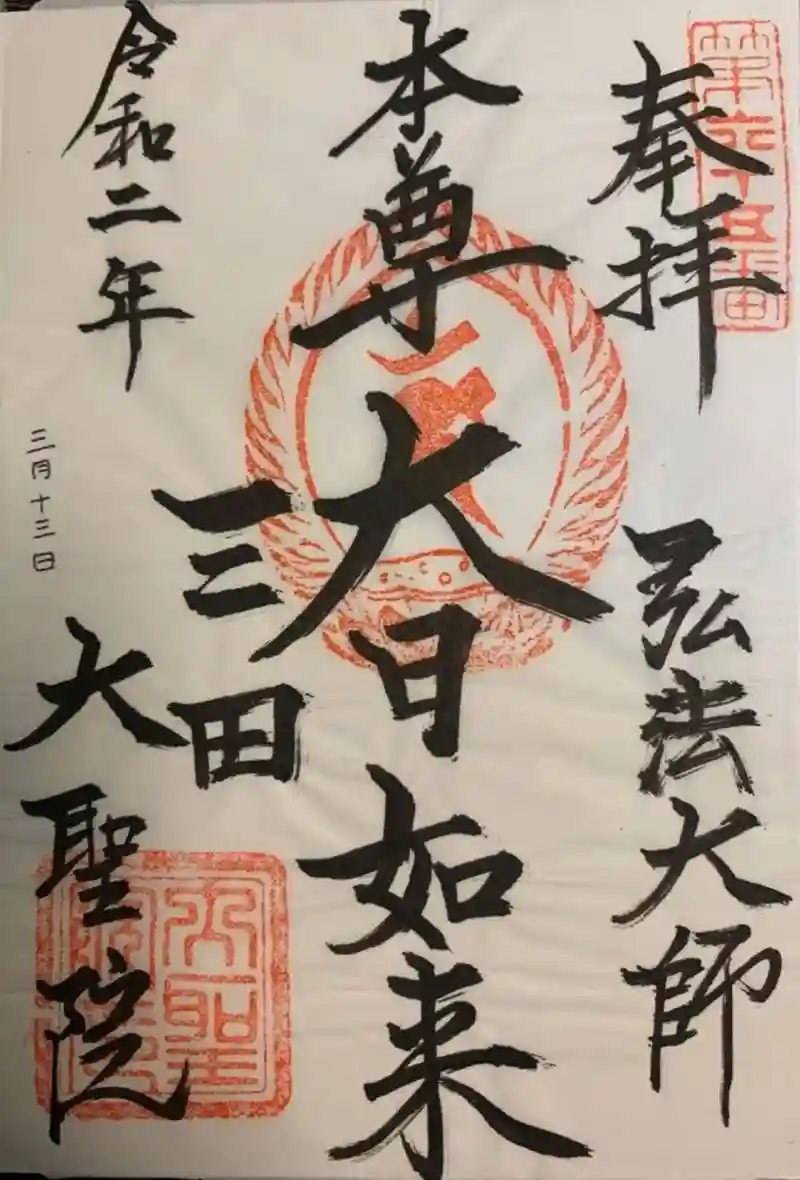 第六十五番
奉拝
弘法大師
本尊
大日如来
三田
大聖院
令和二年
三月十三日